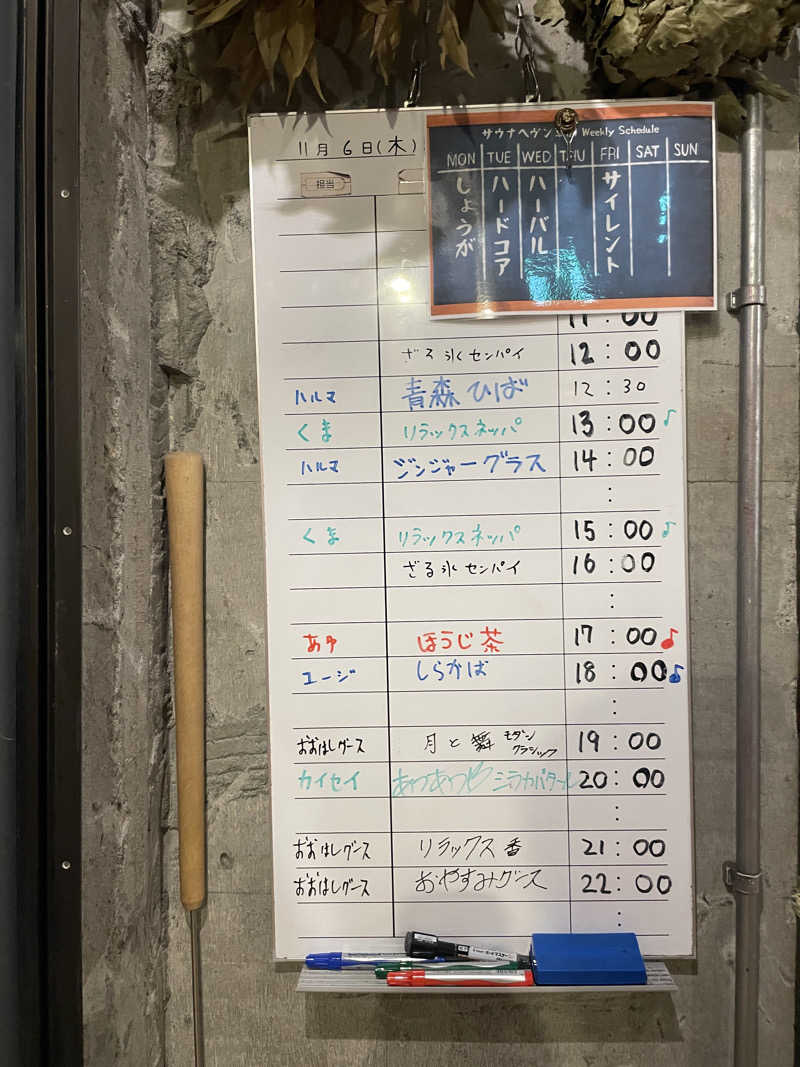 11月 6日(木)
担当
サウナヘヴン Weekly Schedule
MON TUE WED THU FRI SAT SUN
しょうが ハードコア ハーバル サイレント
11:00
ざる氷センパイ 12:00
ハルマ 青森ひば 12:30
くま リラックスネッパ 13:00♪
ハルマ ジンジャーグラス 14:00
:
くま リラックスネッパ 15:00♪
ざる氷センパイ 16:00
:
あゆ ほうじ茶 17:00♪
ユージ しらかば 18:00♪
:
おおはしグース 月と舞 モダンクラシック 19:00
カイセイ あつあつや シラカバタール 20:00
:
おおはしグース リラックス香 21:00
おおはしグース おやすみグース 22:00
: